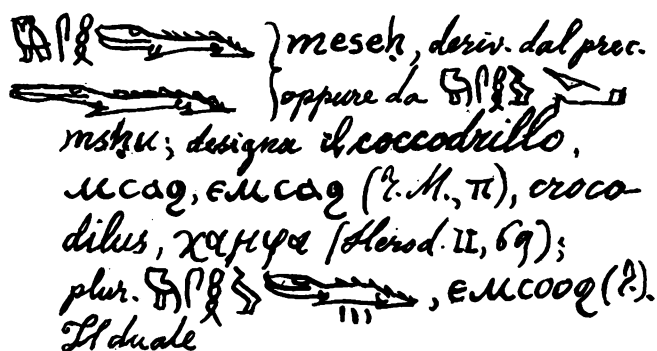 𓅓𓋴𓎛𓆊 } meseḥ, deriv. dal prec.
𓆊 } oppure da 𓅓𓋴𓎛
msḥu; designa il coccodrillo,
ⲙⲥⲁϩ, ⲉⲙⲥⲁϩ (T. M., π), croco-
dilus, χαμψα (Herod. II, 69);
plur. 𓅓𓋴𓎛𓆊𓏥, ⲉⲙⲥⲟⲟϩ (T.).
Il duale